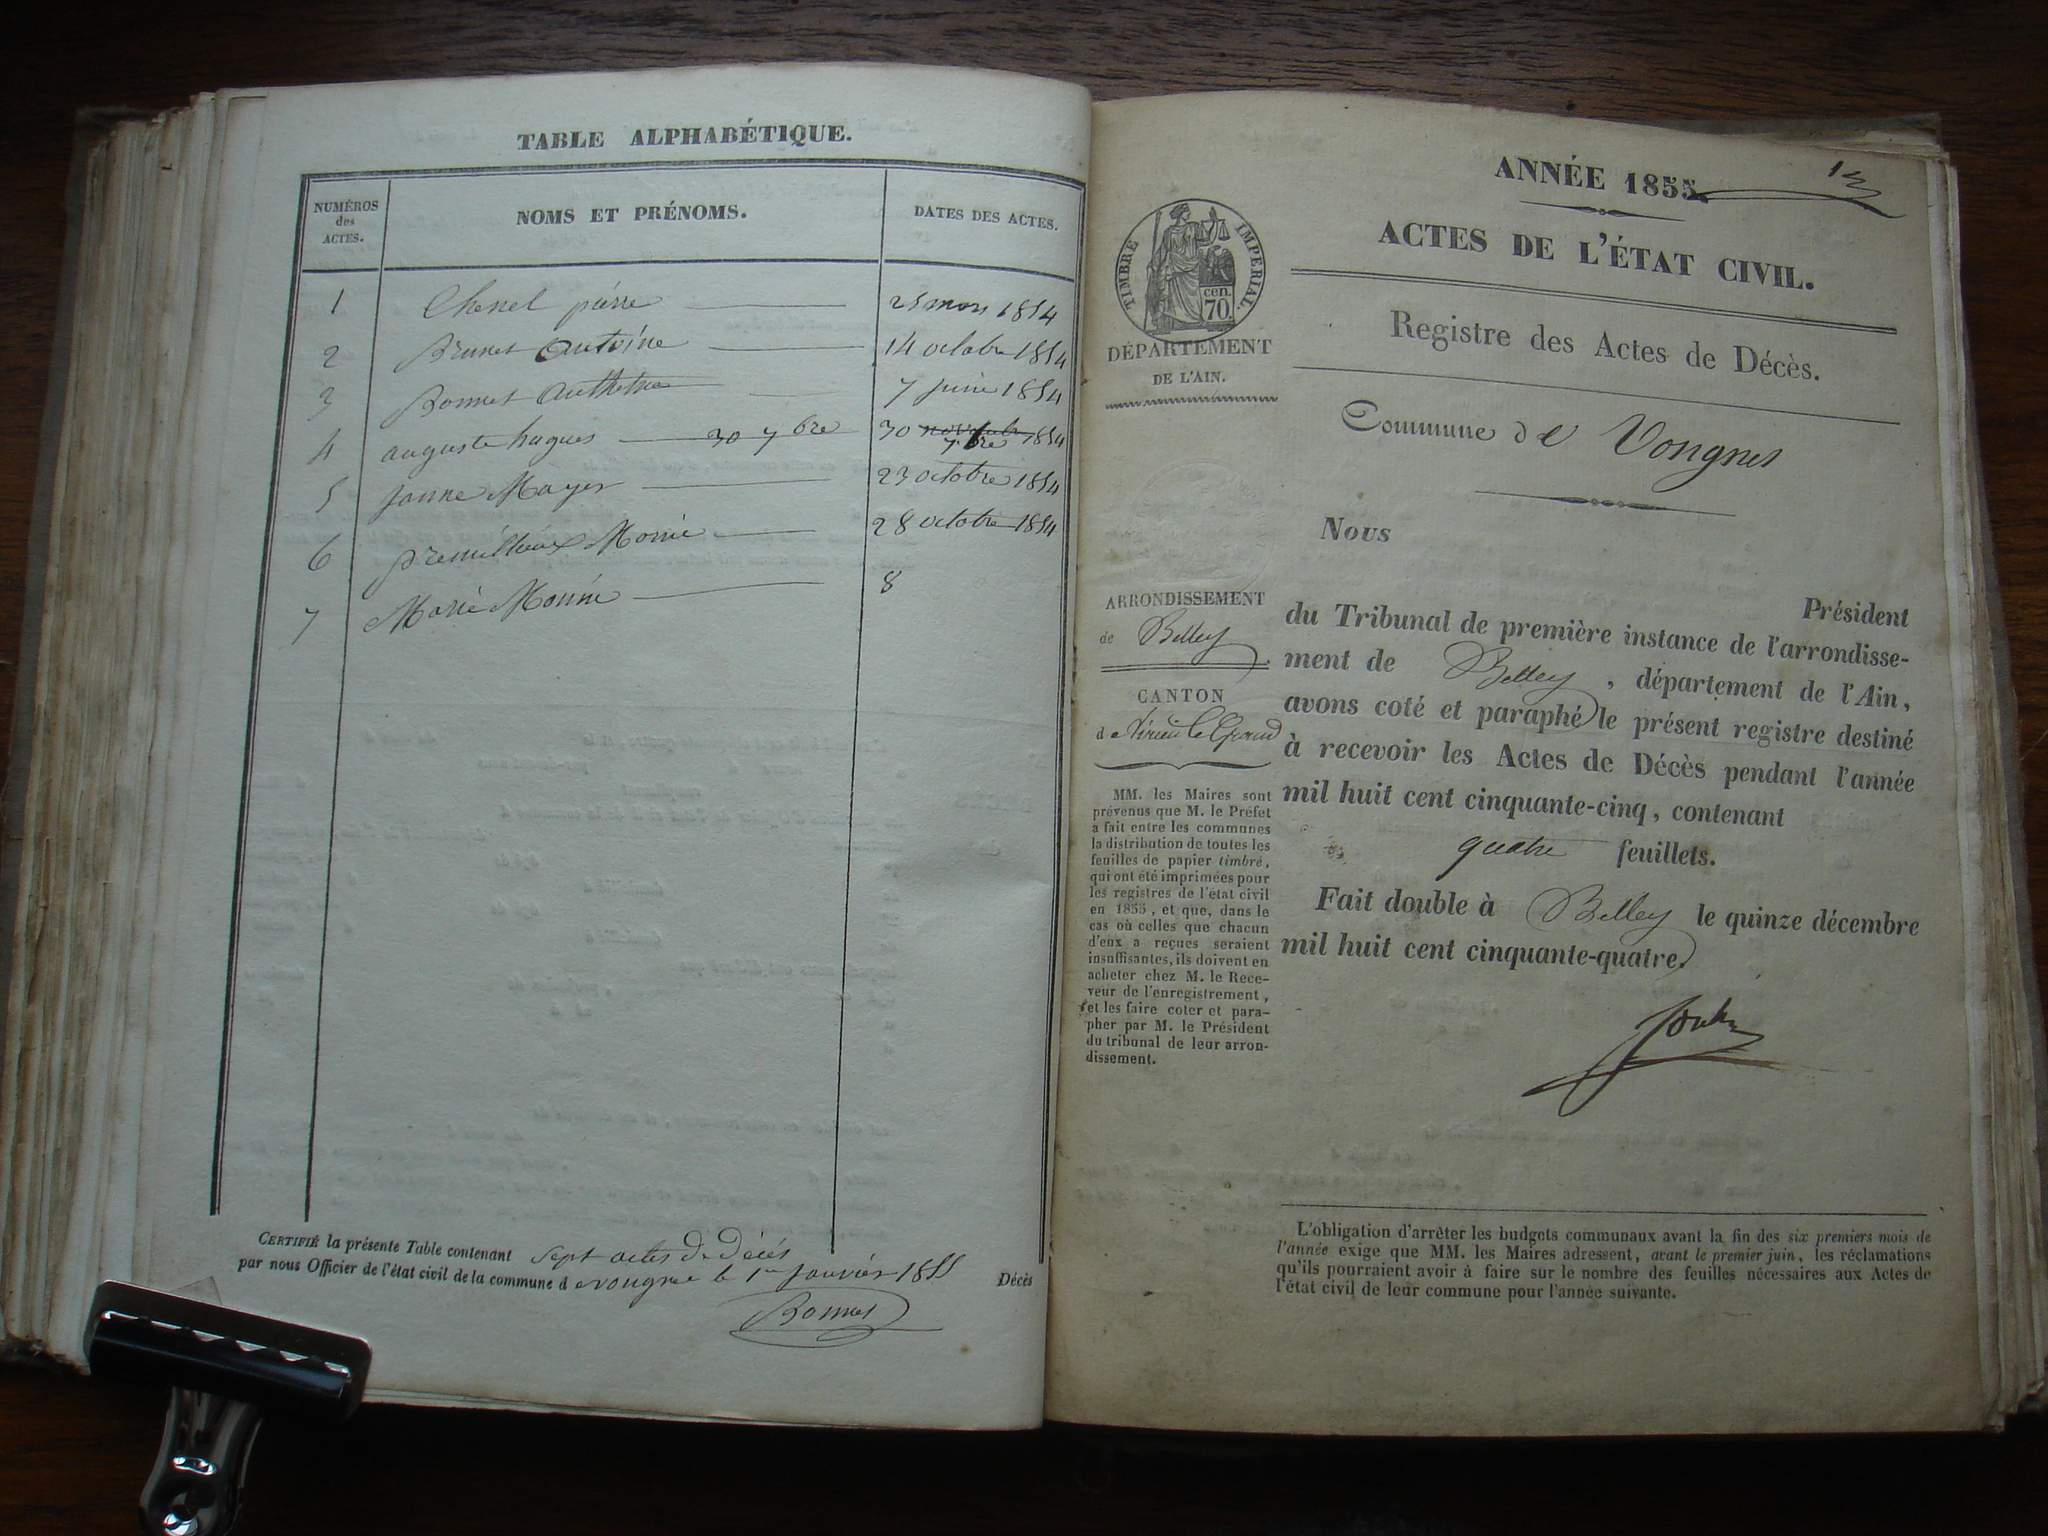 TABLE ALPHABÉTIQUE.
NUMÉROS
des
ACTES.
NOMS ET PRÉNOMS.
DATES DES ACTES.
1 Chenel pierre 25 mars 1854
2 Brunet Antoine 14 octobre 1854
3 Bonnet 7 juin 1854
4 auguste hugues 30 7bre 30 7bre 1854
5 janne Mayer 23 octobre 1854
6 28 octobre 1854
7 Marie 8
CERTIFIÉ la présente Table contenant sept actes de décés
par nous Officier de l'état civil de la commune d evongne le 1er janvier 1855
Décès
Bonnet
ANNÉE 1855.
ACTES DE L'ÉTAT CIVIL.
Registre des Actes de Décès.
Commune de Vongnes
TIMBRE IMPERIAL.
cen.
70.
DÉPARTEMENT
DE L'AIN.
ARRONDISSEMENT
de Belley
CANTON
de Virieu le Grand
MM. les Maires sont
prévenus que M. le Préfet
a fait entre les communes
la distribution de toutes les
feuilles de papier timbré,
qui ont été imprimées pour
les registres de l'état civil
en 1855, et que, dans le
cas où celles que chacun
d'eux a reçues seraient
insuffisantes, ils doivent en
acheter chez M. le Rece-
veur de l'enregistrement,
et les faire coter et para-
pher par M. le Président
du tribunal de leur arron-
dissement.
Nous
Président
du Tribunal de première instance de l'arrondisse-
ment de Belley, département de l'Ain,
avons coté et paraphé le présent registre destiné
à recevoir les Actes de Décès pendant l'année
mil huit cent cinquante-cinq, contenant
quatre feuillets.
Fait double à Belley le quinze décembre
mil huit cent cinquante-quatre.
L'obligation d'arrêter les budgets communaux avant la fin des six premiers mois de
l'année exige que MM. les Maires adressent, avant le premier juin, les réclamations
qu'ils pourraient avoir à faire sur le nombre des feuilles nécessaires aux Actes de
l'état civil de leur commune pour l'année suivante.